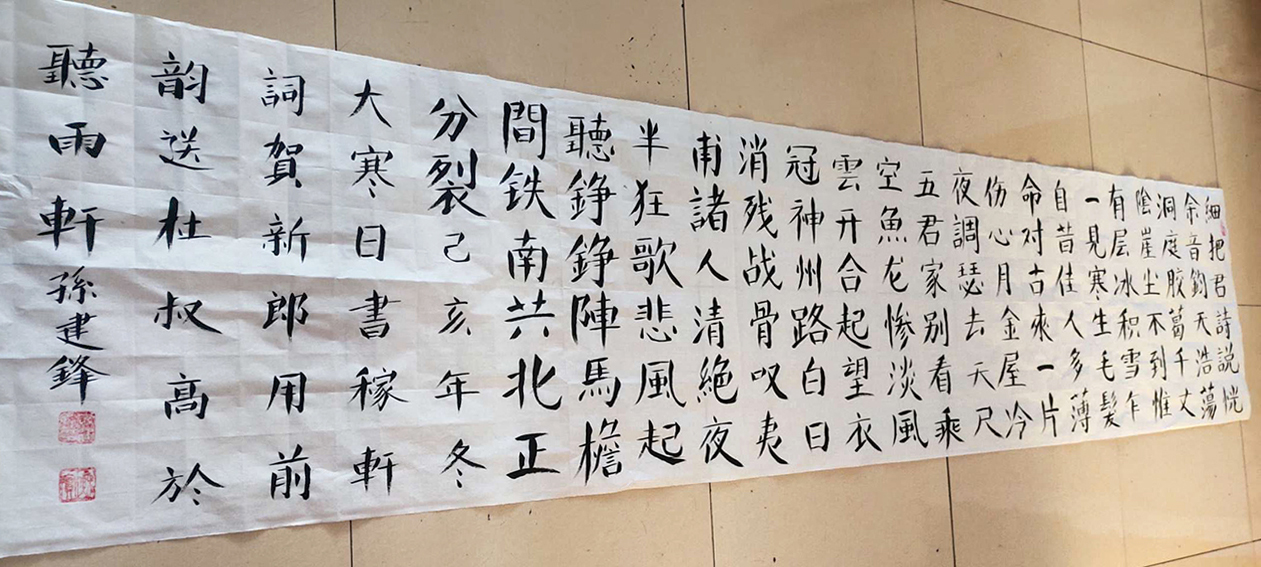 細把君詩説恍
余音鈞天浩蕩
洞庭胶葛千丈
陰崖尘不到惟
有层冰积雪乍
一見寒生毛髮
自昔佳人多薄
命对古來一片
伤心月金屋冷
夜調瑟去天尺
五君家别看乘
空魚龙惨淡風
雲开合起望衣
冠神州路白日
消残战骨叹夷
甫諸人清絶夜
半狂歌悲風起
聽錚錚陣馬檐
間铁南共北正
分裂己亥年冬
大寒日書稼軒
詞賀新郎用前
韵送杜叔高於
聽雨軒孫建鋒